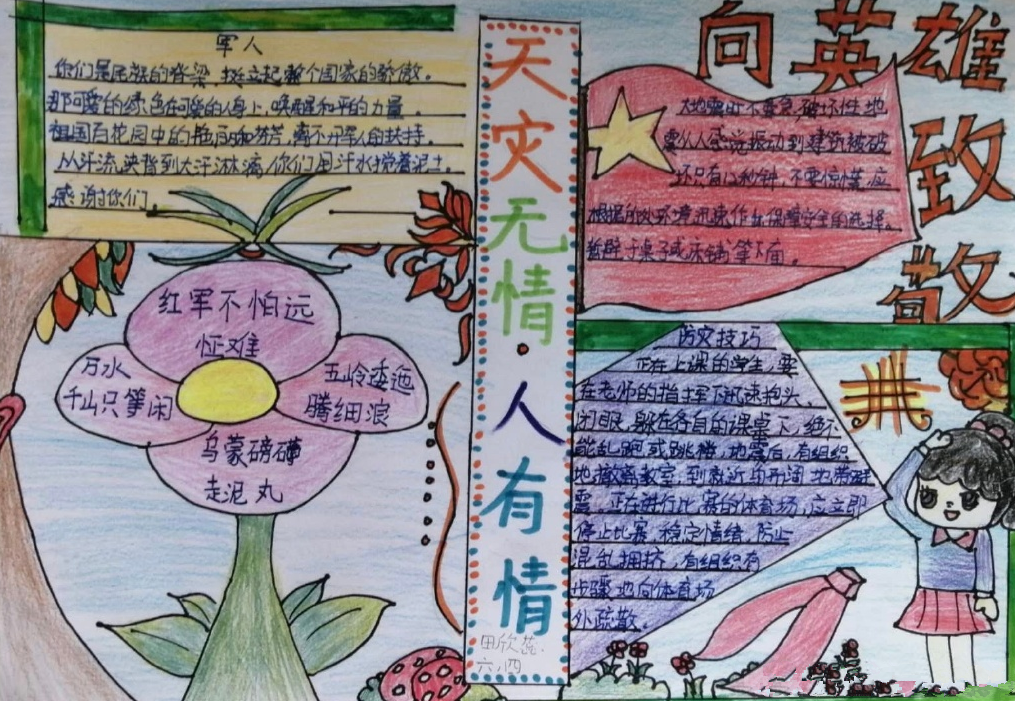 军人
你们是民族的脊梁，挺立起整个国家的骄傲。
那可爱的绿色在可爱的人身上，唤醒和平的力量。
祖国百花园中的艳丽和芬芳，离不开军人的扶持。
从汗流浃背到大汗淋漓，你们用汗水搅着泥土，
感谢你们
红军不怕远
怔难
万水
千山只等闲
五岭逶迤
腾细浪
乌蒙磅礴
走泥丸
天灾无情·人有情
田欣蕊.
六.四
向英雄致敬
大地震时不要急，破坏性地
震从人感觉振动到建筑被破
坏只有12秒钟，不要惊慌，应
根据所处环境迅速作出保障安全的选择。
暂避于桌子或床铺等下面。
防灾技巧
正在上课的学生，要
在老师的指挥下迅速抱头、
闭眼、躲在各自的课桌下，绝不
能乱跑或跳楼，地震后，有组织
地撤离教室，到就近的开阔地带避
震。正在进行比赛的体育场，应立即
停止比赛，稳定情绪，防止
混乱拥挤，有组织有
步骤地向体育场
外疏散。